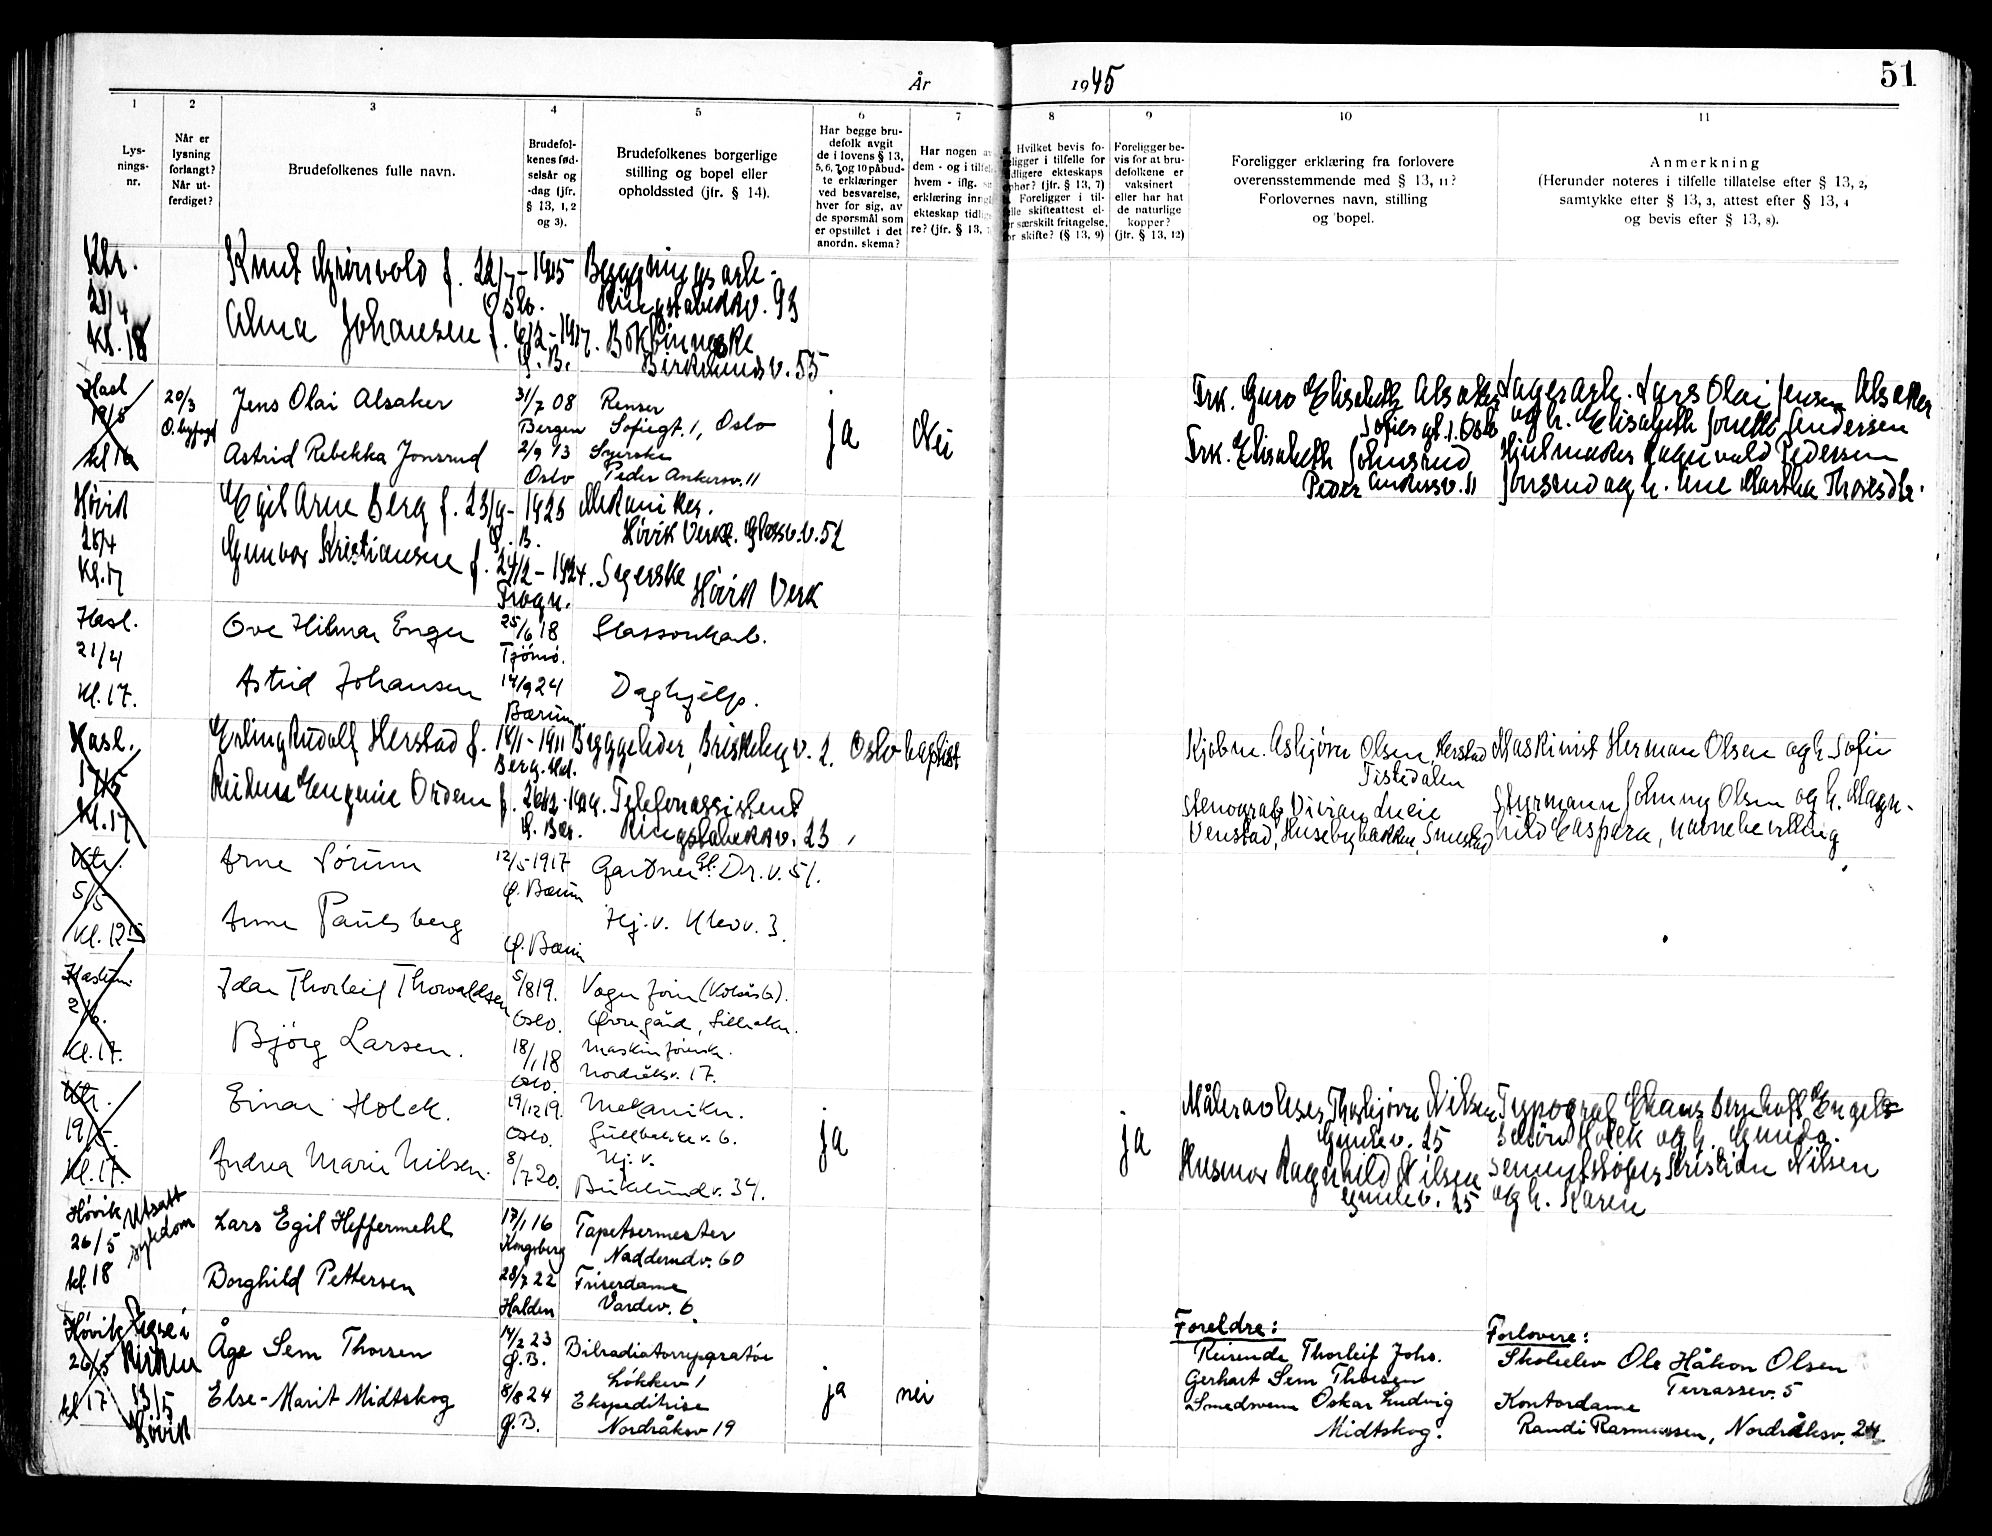 År
1945
51
1
2
3
4
5
6
7
8
9
10
11
Lys-
nings-
nr.
Når er
lysning
forlangt?
Når ut-
ferdiget?
Brudefolkenes fulle navn.
Brudefol-
kenes fød-
selsår og
-dag (jfr.
§ 13, 1, 2
og 3).
Brudefolkenes borgerlige
stilling og bopel eller
opholdssted (jfr. § 14).
Har begge bru-
defolk avgit
de i lovens § 13,
5, 6, 7 og 10 påbud-
te erklæringer
ved besvarelse,
hver for sig, av
de spørsmål som
er opstillet i det
anordn. skema?
Har nogen av
dem - og i tilfelle
hvem - iflg.
erklæring inngått
ekteskap tidlige-
re? (jfr. § 13,
Hvilket bevis fo-
religger i tilfelle for
tidligere ekteskaps
ophør? (jfr. § 13, 7)
Foreligger i til-
felle skifteattest el-
ler særskilt fritagelse,
for skifte? (§ 13, 9)
Foreligger be-
vis for at bru-
defolkene er
vaksinert
eller har hat
de naturlige
kopper?
(jfr. § 13, 12)
Foreligger erklæring fra forlovere
overensstemmende med § 13, 11?
Forlovernes navn, stilling
og bopel.
Anmerkning
(Herunder noteres i tilfelle tillatelse efter § 13, 2,
samtykke efter § 13, 3, attest efter § 13, 4
og bevis efter § 13, 8).
Knut Grønvold f. 22/7-1915
Oslo.
93
Kl. 18
Alma Johansen f. 6/2-1917.
Ø. B.
Birkelundsv. 55
Hasl
19/5
kl 16
20/3
O. byfogd
Jens Olai Alsaker
31/7 08
Bergen
Renser
Sofiegt. 1, Oslo
Astrid Rebekka Jonsrud
2/9 13
Oslo
Syerske
Peder Ankersv. 11
ja
Nei
Frk. Guro Elisabeth Alsaker
Sofies gt. 1. Oslo
Frk. Elisabeth Johnsrud
Peder Ankersv. 11
Lagerarb. Lars Olai Jensen Alsaker
og h. Elisabeth
Ragnvald Pedersen
Jonsrud og h. Ane Martha Thoresdtr.
Høvik
28/4
Kl. 17
Egil Arne Berg f. 23/9-1923
Ø. B.
Mekaniker.
Høvik Verk. Glassv. v. 52
Gunvor Kristiansen f. 24/2-1924.
Frogn.
Syerske
Høvik Verk
Hasl.
21/4
Kl. 17.
Ove Hilmar Enger
25/6 18
Tjömö.
Astrid Johansen
14/9 24
Bærum
Daghjelp.
Hasl.
Kl. 17
Erling Rudolf Herstad f. 18/1-1911
Byggeleder, Briskebyv. 2. Oslo
baptist
Telefonassistent
Ringstabekkv. 23
Kjøbm. Asbjørn Olsen Herstad
Tistedalen
Stenograf Vivian Lucie
Venstad, Husebybakken, Smestad
Maskinist Herman Olsen og h. Sofie
Styrmann Johnny Olsen og h. Magn-
hild Caspara, navnebevilling
5/5
Kl. 12
Arne Sørum
12/5 1917
Ø. Bærum
Gartner Gl. Dr. v. 51.
Anne Paulsberg
Ø. Bærum
Hj. v.
Haslum.
2/6.
Kl. 17.
Idar Thorleif Thorvaldsen
5/8 19.
Oslo.
Øvre gård,
Bjørg Larsen.
18/1 18
Oslo.
Nordråksv. 17.
Kl. 17.
Einar Holck.
19/12 19.
Oslo.
Mekaniker.
Gullbakkev. 6.
Andrea Marie Nilsen.
8/7 20.
Hj. v.
Birkelundv. 34.
ja
ja
Thorbjørn Nilsen
25
Husmor Ragnhild Nilsen
25
Typograf
Holck og h. Gunda.
Kristian Nilsen
og h. Karen
Høvik
26/5
kl. 18
Utsatt
sykdom
Lars Egil Heffermehl
17/1 16
Kongsberg
Tapetsermester
Nadderudv. 60
Borghild Pettersen
28/7 22
Halden
Friserdame
Vardev. 6
Høvik
26/5
kl 17
13/5
Høvik
Åge Sem Thorsen
14/2 23
Ø. B.
Bilradiatorreparatør
Løkkev 1
Else-Marit Midtskog
8/8 24
Ø. B.
Ekspeditrise
Nordråksv 19
ja
nei
Foreldre:
Reisende Thorleif Johs.
Gerhart Sem Thorsen
Smedsvenn Oskar Ludvig
Midtskog.
Forlovere:
Skoleelev Ole Håkon Olsen
Terrassev. 5
Kontordame
Randi Rasmussen, Nordråksv. 24